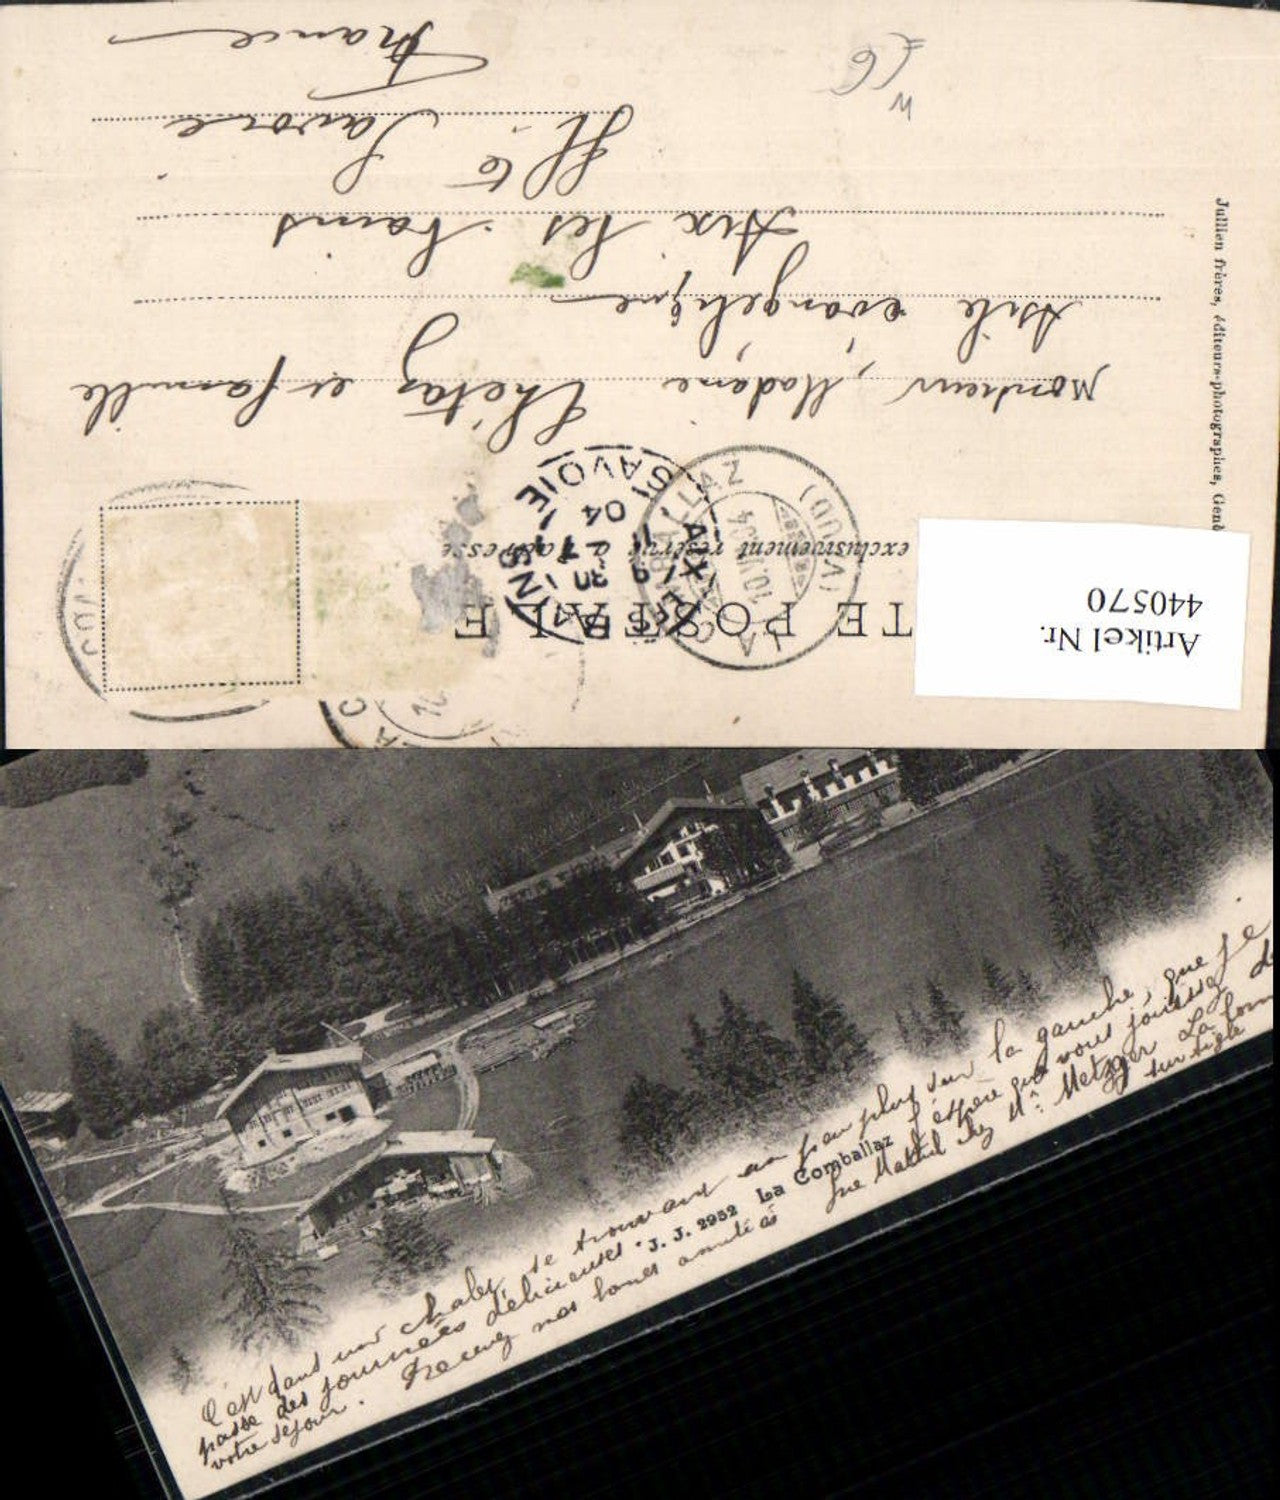 TE POSTALE
exclusivement réservé à l'adresse
Artikel Nr.
440570
LA COMBALLAZ
10 VII 04
(VAUD)
AIX-LES-BAINS
9 30
11 - 7
04
SAVOIE
Monsieur, Madame et famille
Asile évangélique
Aix les bains
Hte Savoie
France
Jullien frères, éditeurs-photographes, Genè
C'est dans un chalet, se trouvant un peu plus sur la gauche, que je
passe des journées délicieuses. J'espère que vous jouissez de
votre séjour. Recevez nos bonnes amitiés
J. J. 2952 La Comballaz
chez Mr. Metzger La Com
sur Aigle